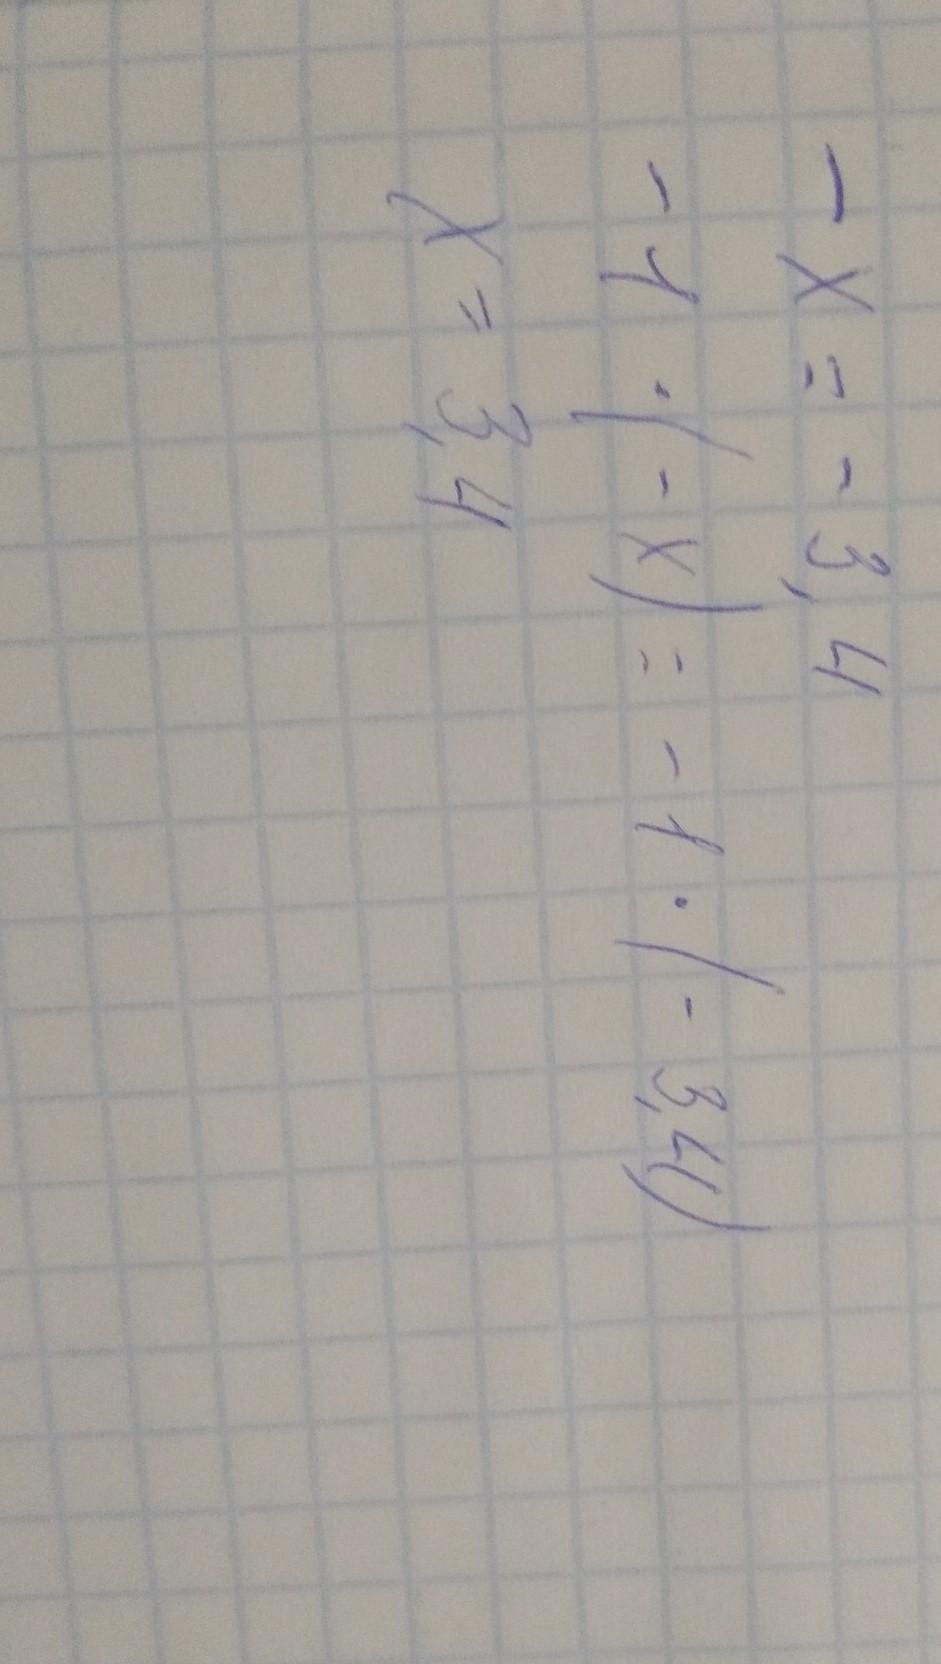 - x = - 3,4
- 1 · (- x) = - 1 · (- 3,4)
x = 3,4